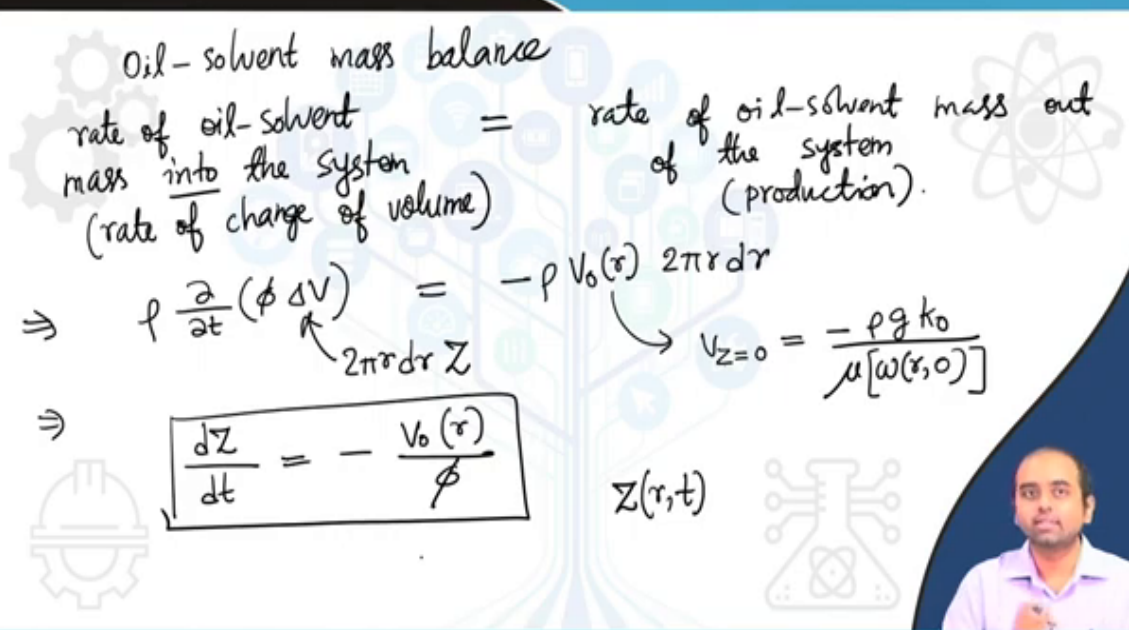 Oil-solvent mass balance
rate of oil-solvent mass into the system (rate of change of volume) = rate of oil-solvent mass out of the system (production).
⇒ ρ ∂/∂t (ϕ ΔV) = -ρ V₀(r) 2πr dr
2πr dr Z
V_{Z=0} = -ρ g k₀ / μ[ω(r,0)]
⇒ dZ/dt = - V₀(r)/ϕ
Z(r,t)